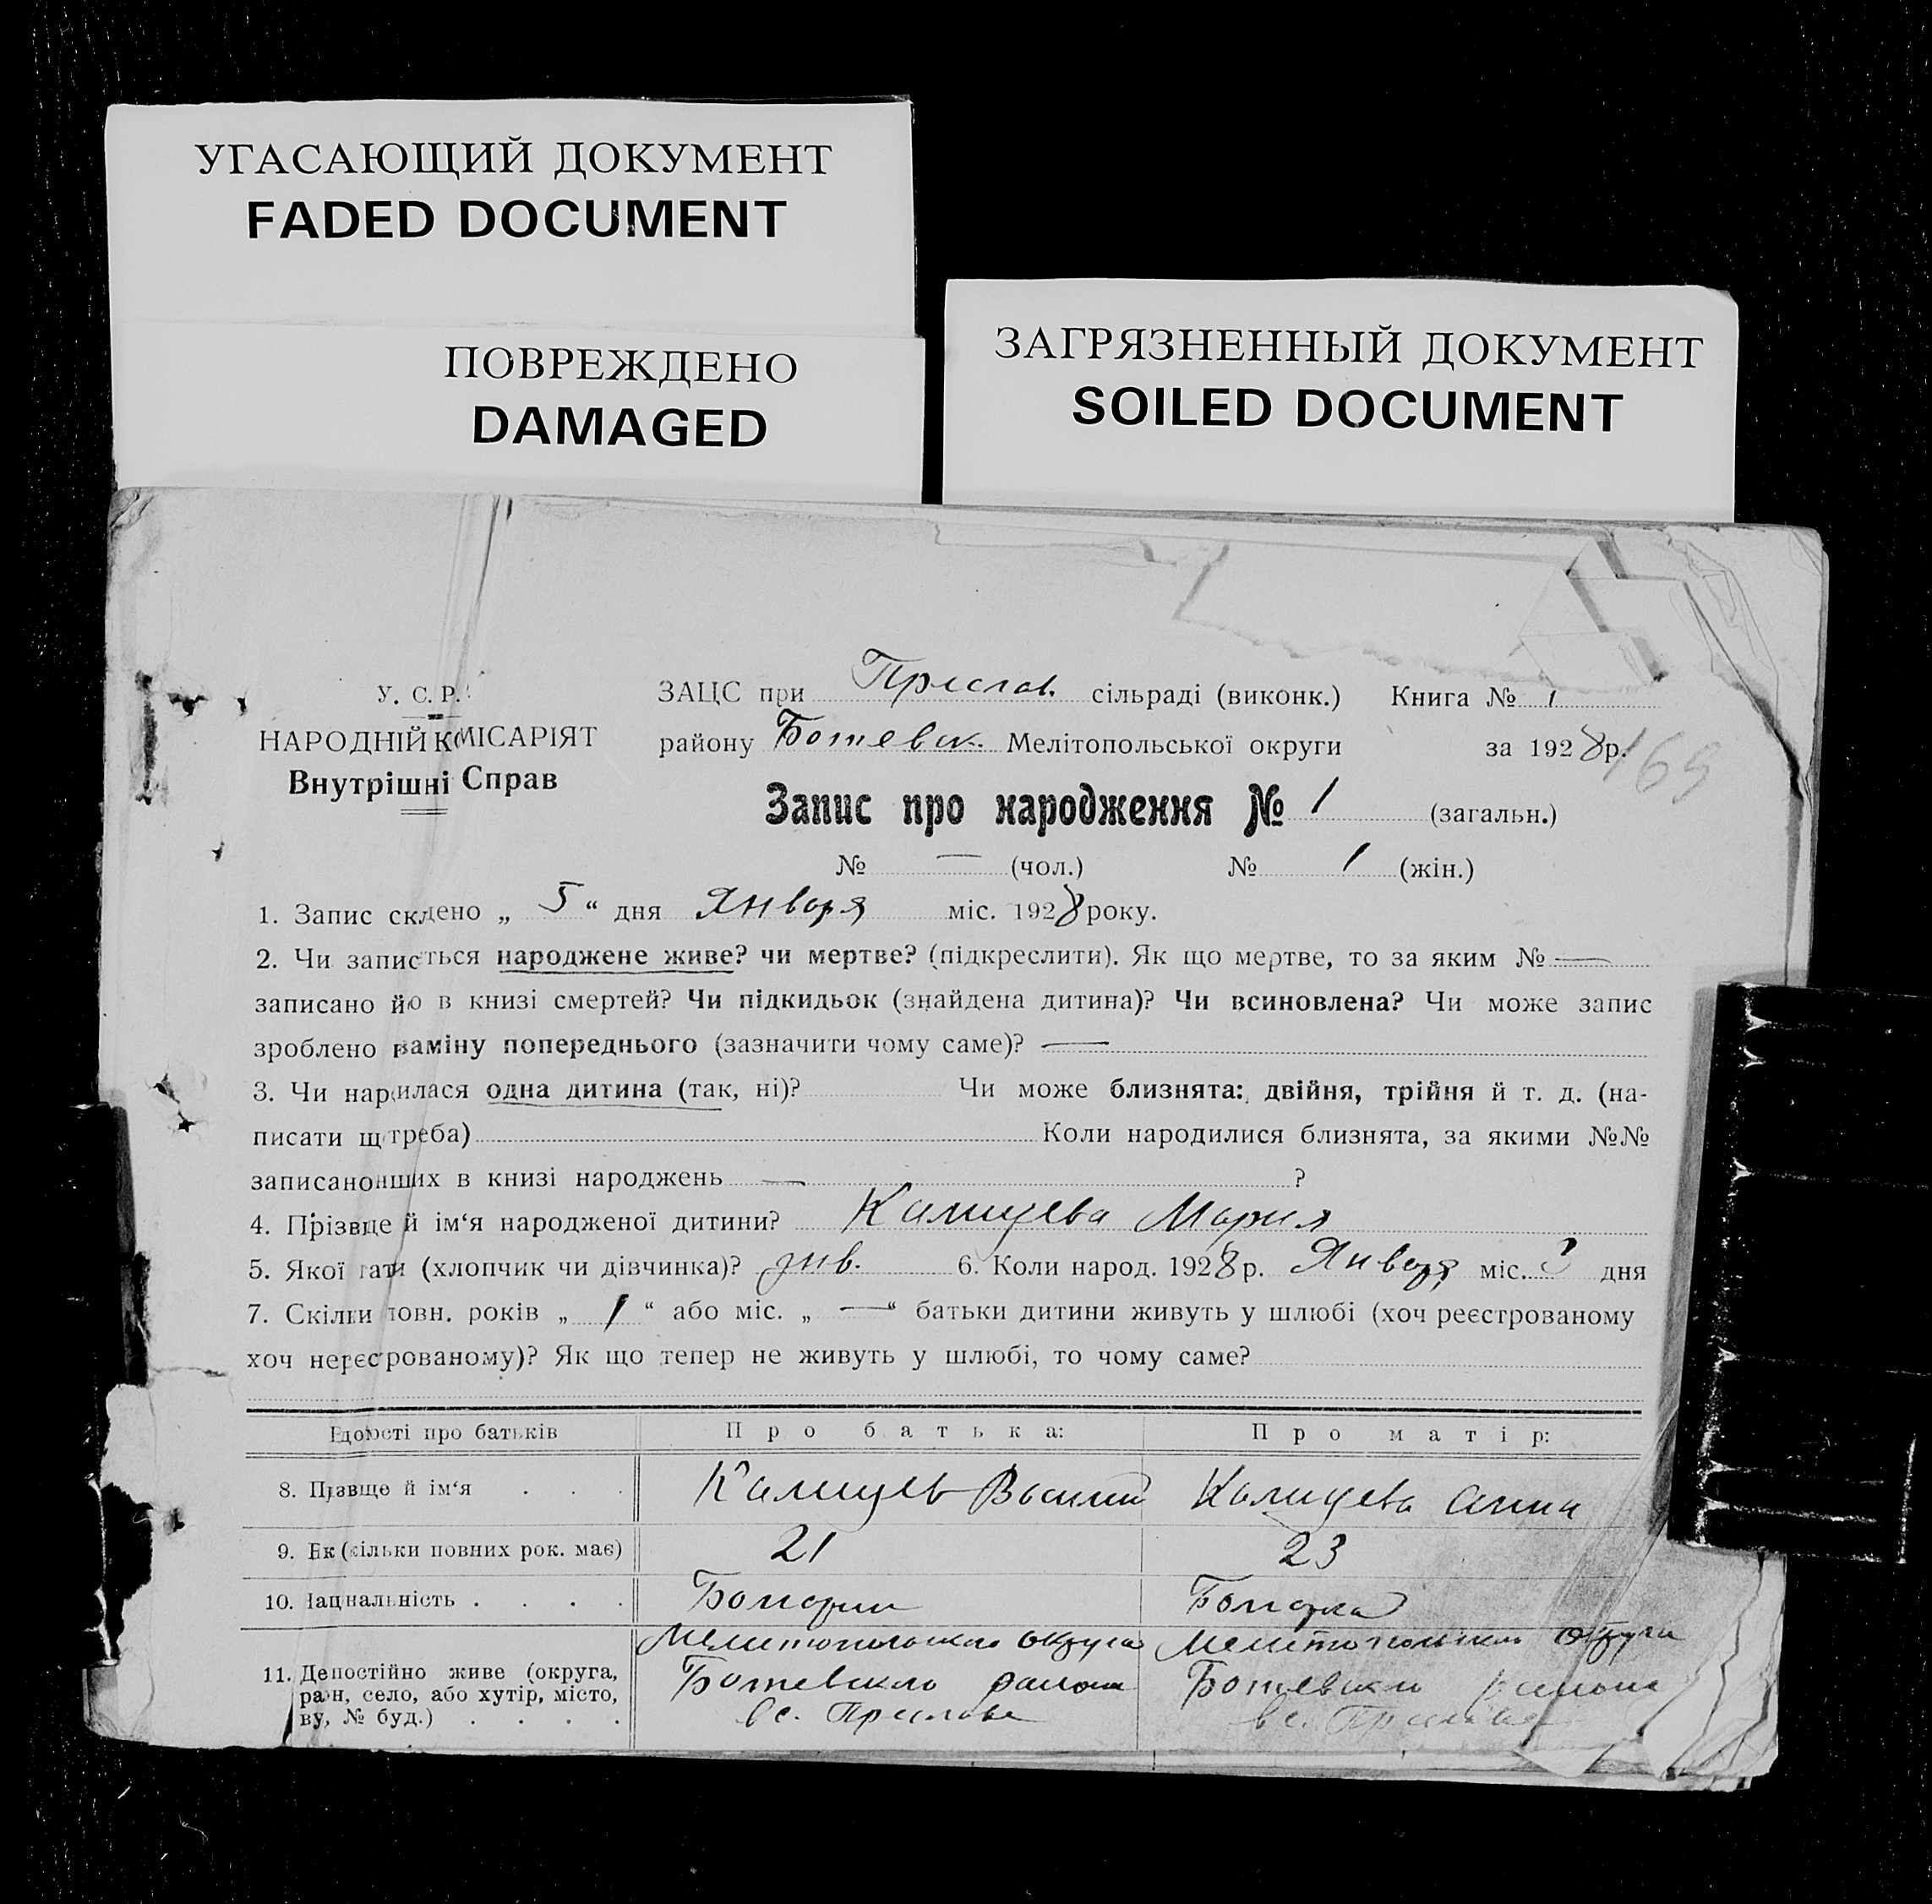 УГАСАЮЩИЙ ДОКУМЕНТ
FADED DOCUMENT
ПОВРЕЖДЕНО
DAMAGED
ЗАГРЯЗНЕННЫЙ ДОКУМЕНТ
SOILED DOCUMENT
У. С. Р. Р.
НАРОДНІЙ КОМІСАРІЯТ
Внутрішні Справ
ЗАЦС при Преслав. сільраді (виконк.) Книга № 1
району Ботевск. Мелітопольської округи за 1928 р.
169
Запис про народження № 1 (загальн.)
№ — (чол.) № 1 (жін.)
1. Запис складено „ 5 “ дня Января міс. 1928 року.
2. Чи записується народжене живе? чи мертве? (підкреслити). Як що мертве, то за яким № —
записано його в книзі смертей? Чи підкидьок (знайдена дитина)? Чи всиновлена? Чи може запис
зроблено на заміну попереднього (зазначити чому саме)? —
3. Чи народилася одна дитина (так, ні)? Чи може близнята: двійня, трійня й т. д. (на-
писати що треба) Коли народилися близнята, за якими №№
записано інших в книзі народжень — ?
4. Прізвище й ім‘я народженої дитини? Калицева Мария
5. Якої статі (хлопчик чи дівчинка)? дів. 6. Коли народ. 1928 р. Января міс. 3 дня
7. Скільки повн. років „ 1 “ або міс. „ — “ батьки дитини живуть у шлюбі (хоч реєстрованому
хоч нереєстрованому)? Як що тепер не живуть у шлюбі, то чому саме?
Відомості про батьків Про батька: Про матір:
8. Прізвище й ім‘я . . . Калицев Василий Калицева Анна
9. Вік (скільки повних рок. має) 21 23
10. Національність . . . . Болгарин Болгарка
Мелитопольского округа Мелитопольского округа
11. Де постійно живе (округа, Ботевского района Ботевского района
район, село, або хутір, місто, в с. Преслове в с. Преславе
ву, № буд.) . . . .